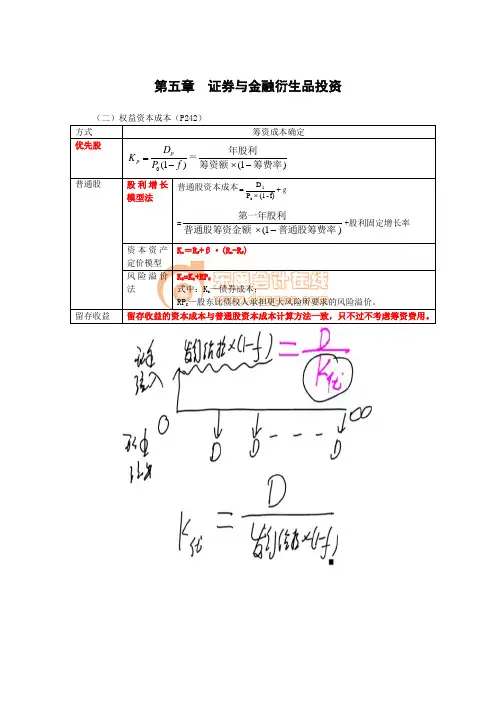 第五章 证券与金融衍生品投资
（二）权益资本成本（P242）
方式 筹资成本确定
优先股
K_P = D_P / P_0(1 − f) = 年股利 / 筹资额 ×(1 − 筹费率)
普通股 股利增长模型法 普通股资本成本= D_1 / P_0 × (1-f) + g
= 第一年股利 / 普通股筹资金额 ×(1 − 普通股筹费率) +股利固定增长率
资本资产定价模型
风险溢价法
式中：K_b—债券成本；
RP_c—股东比债权人承担更大风险所要求的风险溢价。
留存收益 留存收益的资本成本与普通股资本成本计算方法一致，只不过不考虑筹资费用。
东奥会计在线
发行价格×(1-f) = D / K优
0 ∞
D D - - - D
K优 = D / 发行价格×(1-f)